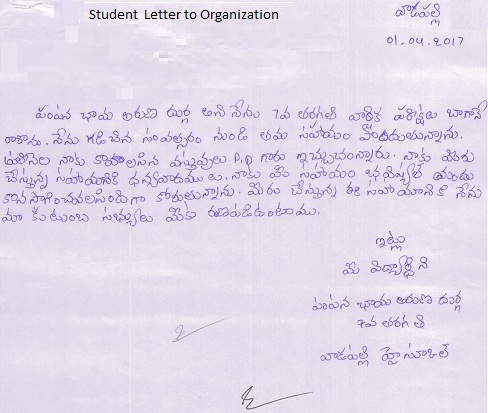 Student Letter to Organization
వాడపల్లి
01.04.2017
పంపన ఛాయ అరుణ దుర్గ అను నేను 7వ తరగతి వార్షిక పరీక్షలు బాగానే
రాశాను. నేను గడిచిన సంవత్సరం నుండి తమ సహాయం పొందుతున్నాను.
ప్రతినెల నాకు కావలసిన వస్తువులు P.D గారు ఇచ్చుచున్నారు. నాకు మీరు
చేస్తున్న సహాయానికి ధన్యవాదములు. నాకు మీ సహాయం భవిష్యత్ యందు
కొనసాగించవలసిందిగా కోరుతున్నాను. మీరు చేస్తున్న ఈ సహాయానికి నేను
మా కుటుంబ సభ్యులు మీకు రుణపడిఉంటాము.
ఇట్లు
మీ విద్యార్థిని
పంపన ఛాయ అరుణ దుర్గ
7వ తరగతి
వాడపల్లి హైస్కూల్